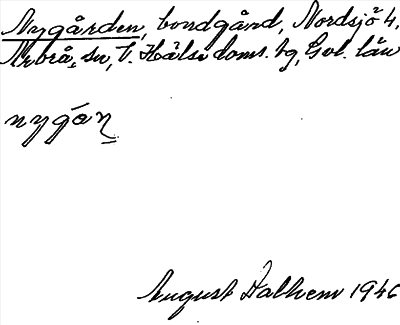 Nygården, bondgård, Nordsjö 4,
Arbrå, sn, V. Häls. doms. tg, Gvl. län
nygan
August Dalhem 1946